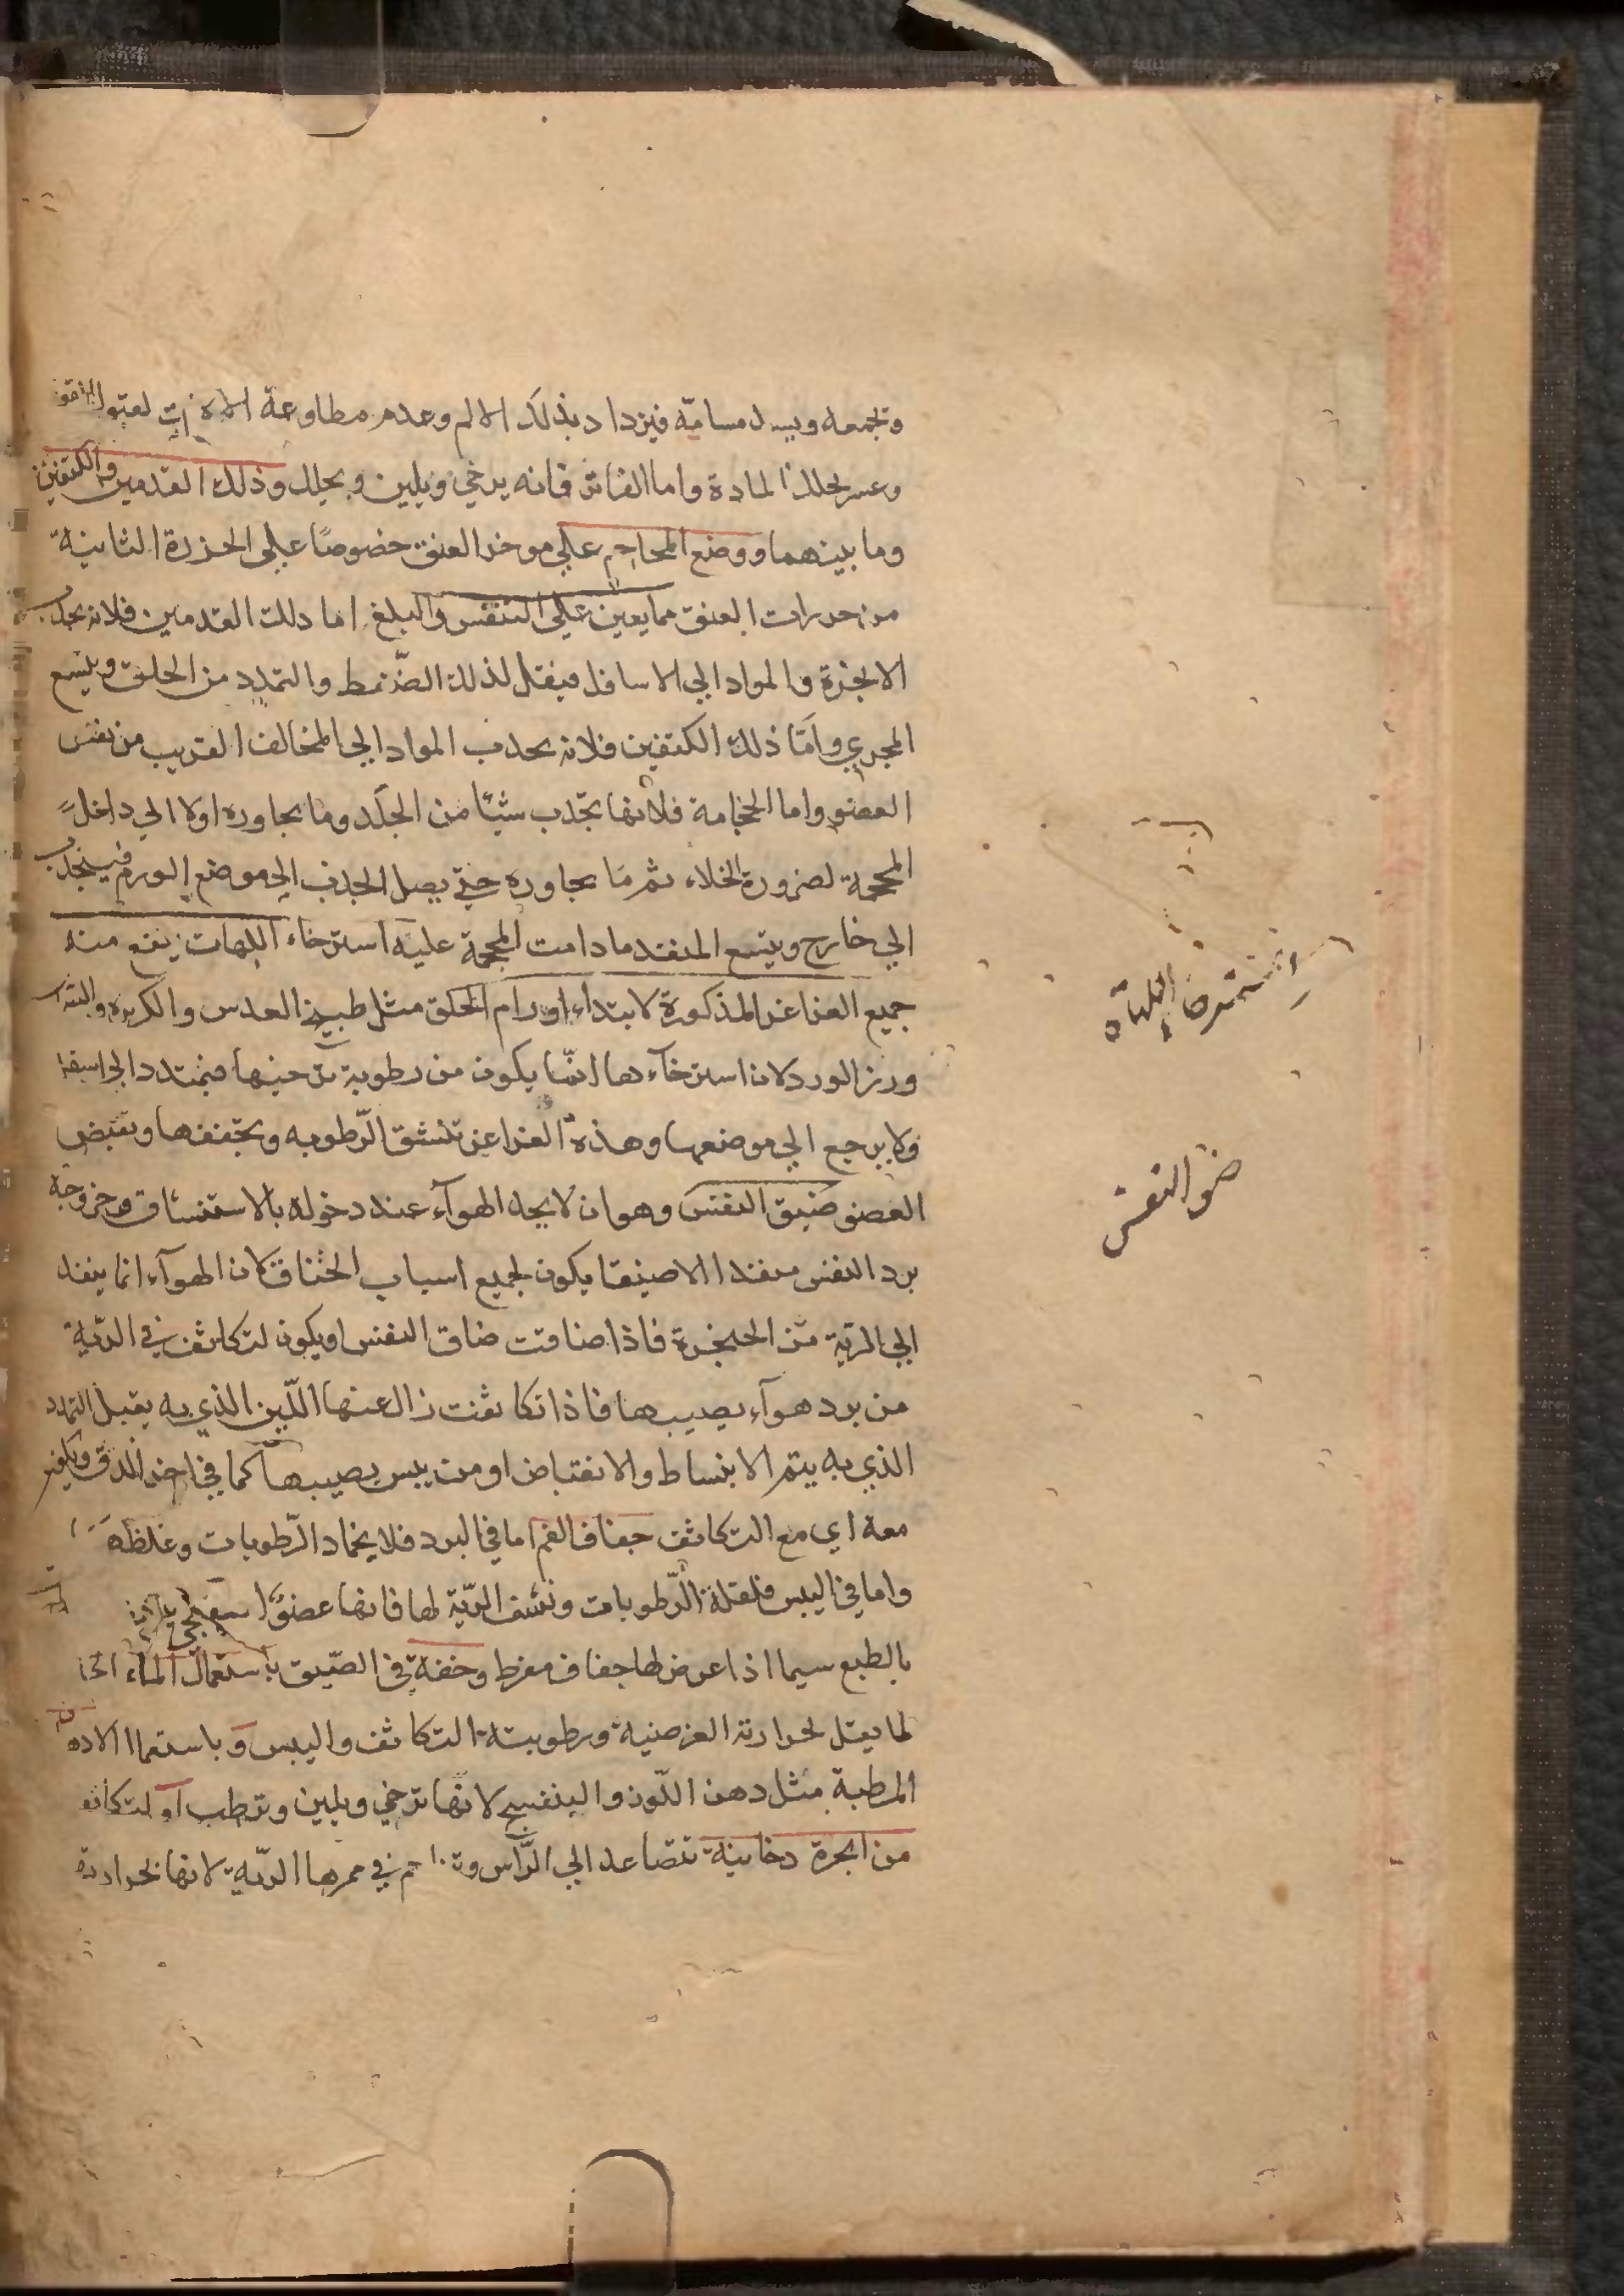 وتجمعه ويسد مسامه فيزداد بذلك الالم وعدم مطاوعة الالات لقبول
وعسر تحلل المادة واما الفاتر فانه يرخي ويلين ويحلل وذلك القدمين والكتفين
وما بينهما ووضع المحاجم علي موخر العنق خصوصًا علي الخرزة الثانية
من خرزات العنق مما يعين علي التنفس والبلع اما دلك القدمين فلانه يجذب
الابخرة والمواد الي الاسافل فيقل لذلك الضغط والتمدد من الحلق ويتسع
المجري وامّا ذلك الكتفين فلانه يجذب المواد الي المخالف القريب من نفس
العضو واما الحجامة فلانها تجذب شيًا من الجلد وما يجاوره اولا الي داخل
المحجمة لضرورة الخلاء ثم ما يجاوره حتي يصل الجذب الي موضع الورم فينجذب
الي خارج ويتسع المنفذ ما دامت المحجمة عليه استرخاء اللهات ينفع منه
جميع الغراغر المذكورة لابتداء اورام الحلق مثل طبيخ العدس والكزبره
وبزر الورد لان استرخآءها انّما يكون من رطوبة ترخيها فيمتدد الي اسفل
ولا يرجع الي موضعها وهذه الغراغر تنشف الرّطوبه وتجففها وتقبض
العضو ضيق النفس وهو ان لا يجد الهوآء عند دخوله بالاستنشاق وخروجه
برد النفس منفذا الا ضيقا يكون لجميع اسباب الخناق لان الهوآء انما ينفذ
الي الرّية من الحنجرة فاذا ضاقت ضاق النفس او يكون لتكاثف في الرّية
من برد هوآء يصيبها فاذا تكاثفت زال عنها اللّين الذي به يقبل التمدد
الذي به يتم الانبساط والانقباض او من يبس يصيبها كما في اخر الدق ويكون
معه اي مع التكاثف جفاف الفم اما في البرد فلانجماد الرّطوبات وغلظها
واما في اليبس فلقلة الرّطوبات ونشف الرّية لها فانها عضو اسفنجي
بالطبع سيما اذا عرض لها جفاف مفرط وخفة في الضّيق باستعمال الماء الحار
لما يقل لحرارته العرضية ورطوبته التكاثف واليبس وباستعمال الادهان
المرطبة مثل دهن اللّوز والبنفسج لانّها ترخي ويلين وترطب او لتكاثف
من ابخرة دخانية تتصاعد الي الرّاس وتزاحم في ممرها الرّية لانها لحرارة
استرخاء اللهاة
ضيق النفس